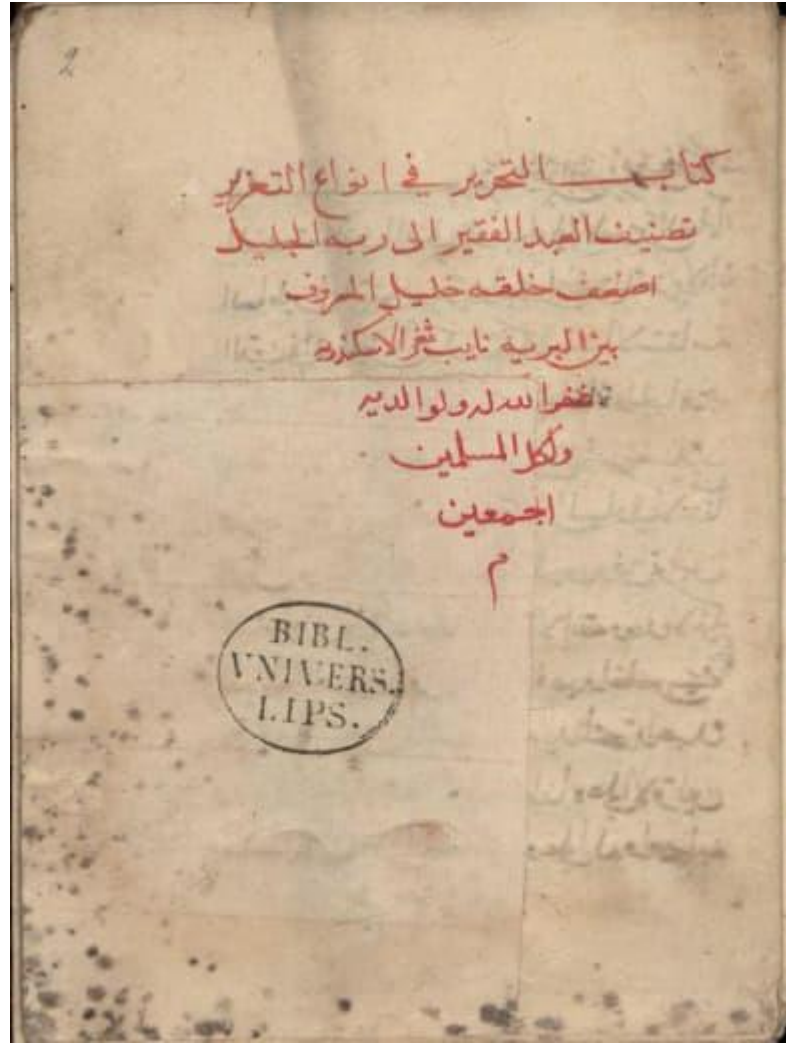 2
كتاب التحرير في انواع التعزير
تصنيف العبد الفقير الى ربه الجليل
اضعف خلقه خليل المعروف
بين البريه نايب ثغر الاسكندريه
غفر الله له ولوالديه
ولكل المسلمين
اجمعين
م
BIBL.
VNIVERS.
LIPS.